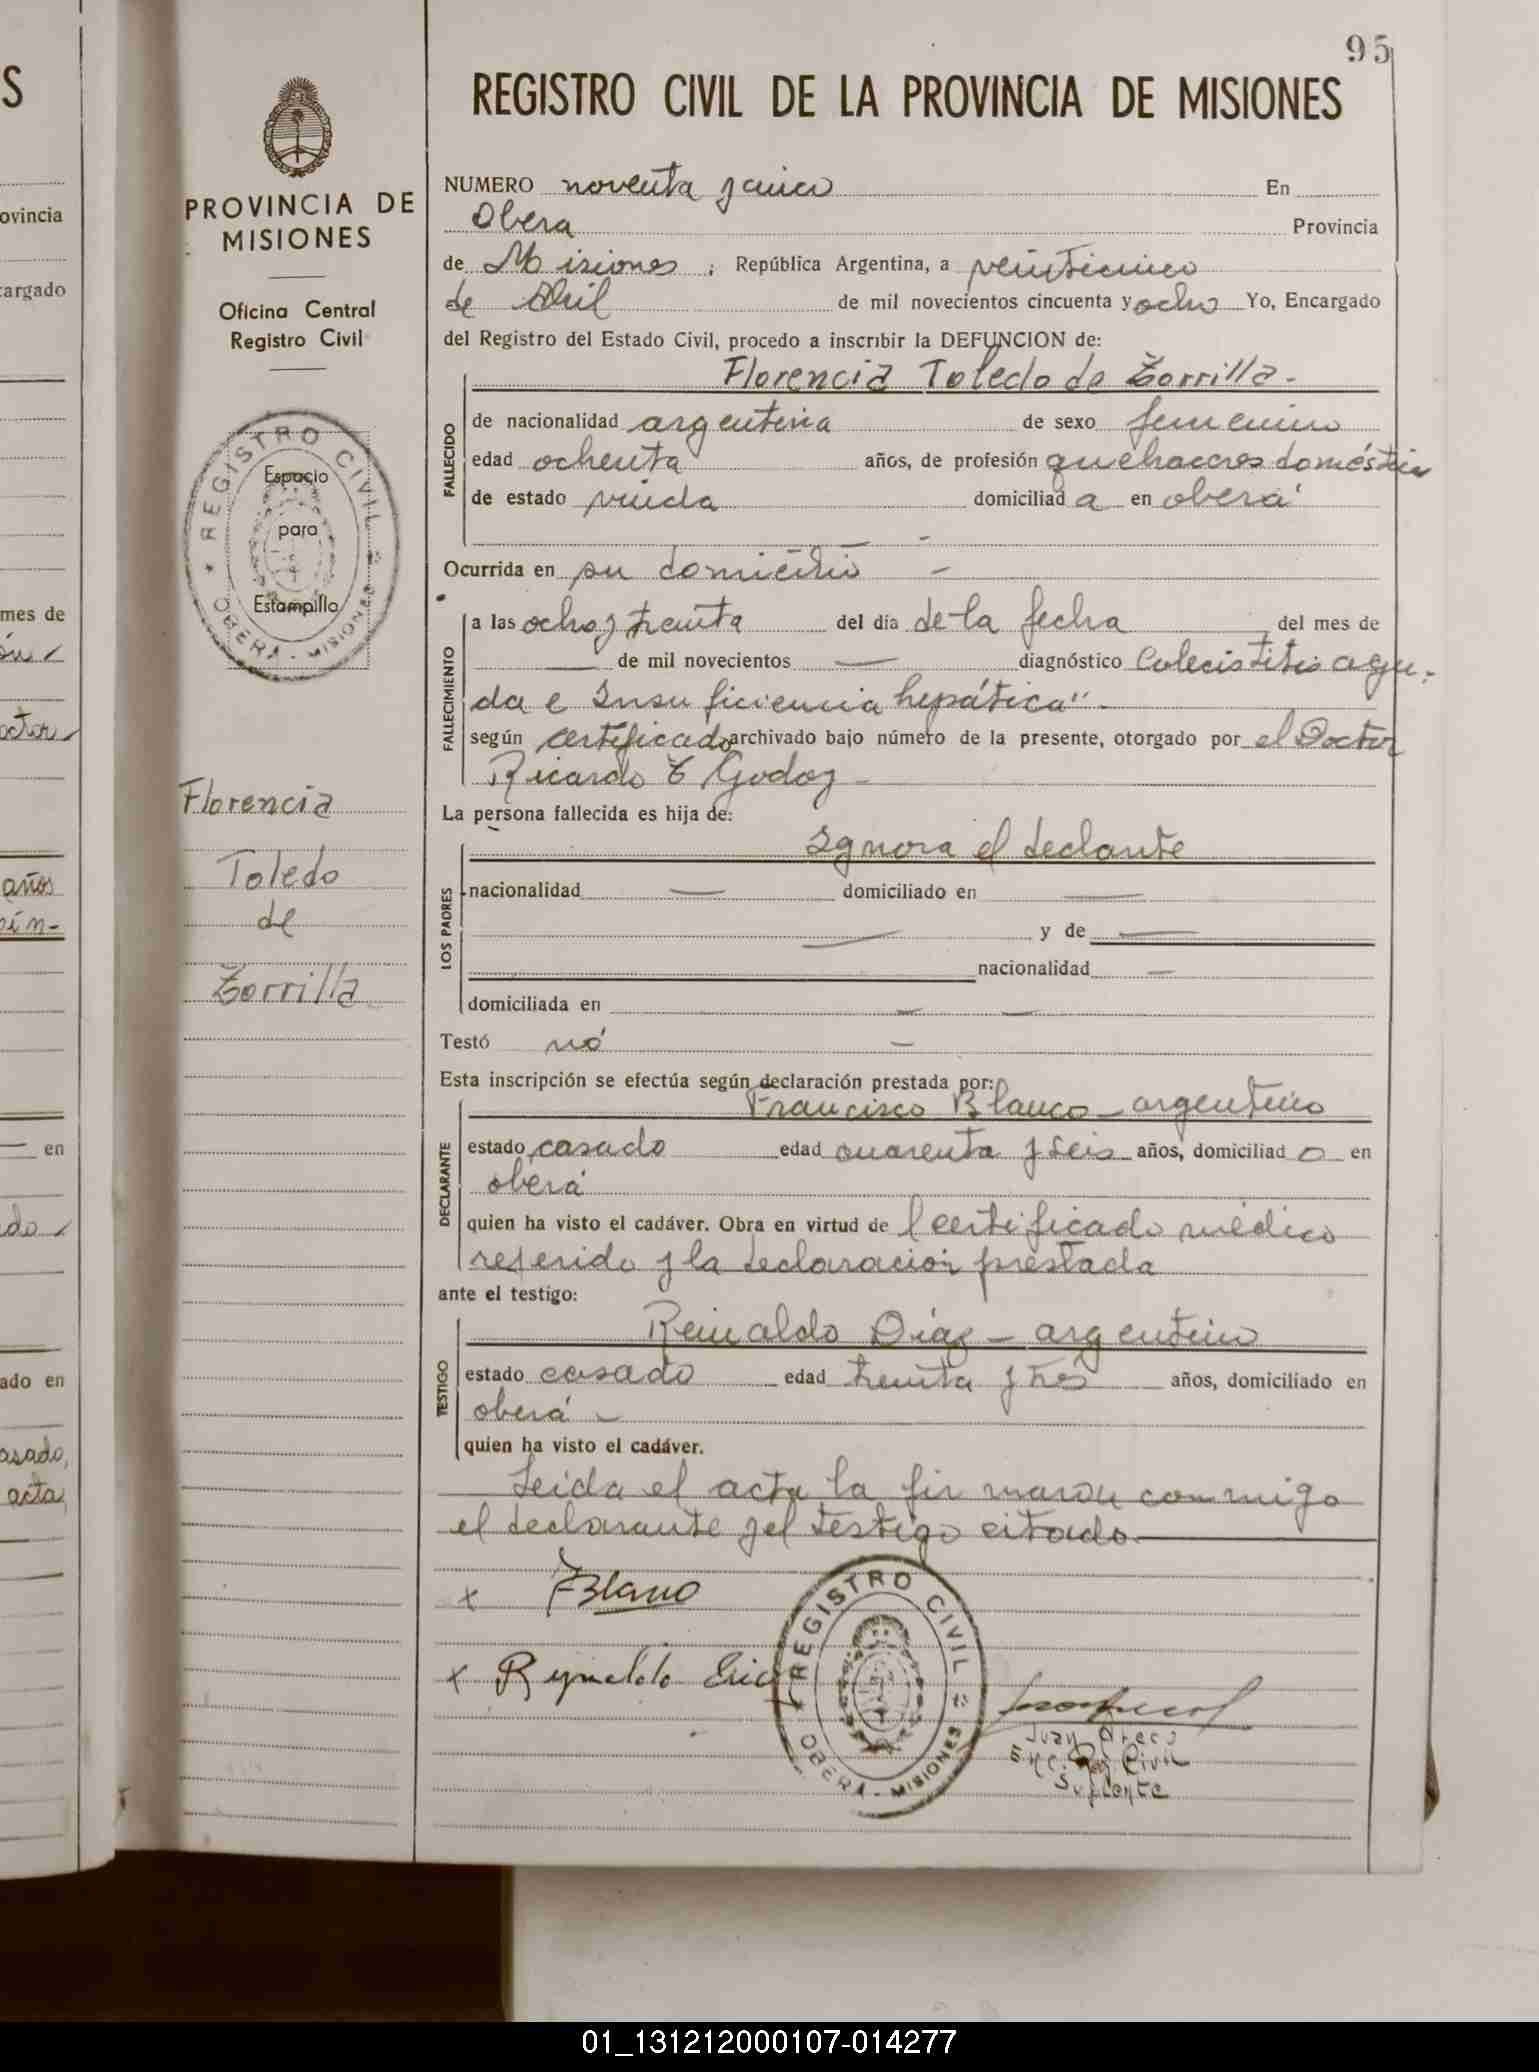 95
REGISTRO CIVIL DE LA PROVINCIA DE MISIONES
PROVINCIA DE
MISIONES
Oficina Central
Registro Civil
REGISTRO CIVIL
Espacio
para
Estampilla
OBERA - MISIONES
Florencia
Toledo
de
Zorrilla
NUMERO noventa y cinco En
Obera Provincia
de Misiones ; República Argentina, a veinticinco
de Abril de mil novecientos cincuenta y ocho Yo, Encargado
del Registro del Estado Civil, procedo a inscribir la DEFUNCION de:
Florencia Toledo de Zorrilla.-
FALLECIDO
de nacionalidad argentina de sexo femenino
edad ochenta años, de profesión quehaceres domésticos
de estado viuda domiciliad a en oberá
Ocurrida en su domicilio -
FALLECIMIENTO
a las ocho y treinta del día de la fecha del mes de
— de mil novecientos — diagnóstico Colecistitis agu-
da e Insuficiencia hepática".-
según certificado archivado bajo número de la presente, otorgado por el Doctor
Ricardo E Godoy -
La persona fallecida es hija de:
Ignora el declante
LOS PADRES
nacionalidad — domiciliado en —
— y de —
nacionalidad —
domiciliada en — —
Testó nó —
Esta inscripción se efectúa según declaración prestada por:
Francisco Blanco - argentino
DECLARANTE
estado casado edad cuarenta y seis años, domiciliad o en
oberá
quien ha visto el cadáver. Obra en virtud de l certificado médico
referido y la declaración prestada
ante el testigo:
Reinaldo Díaz - argentino
TESTIGO
estado casado edad treinta y tres años, domiciliado en
oberá -
quien ha visto el cadáver.
Leida el acta la firmaron conmigo
el declarante y el testigo citado.
x FBlanco
x Reynaldo
REGISTRO CIVIL
OBERA - MISIONES
Juan Areco
Enc. Reg Civil
Suplente
S
ovincia
cargado
mes de
años
en
ado en
casado,
acta
01_131212000107-014277